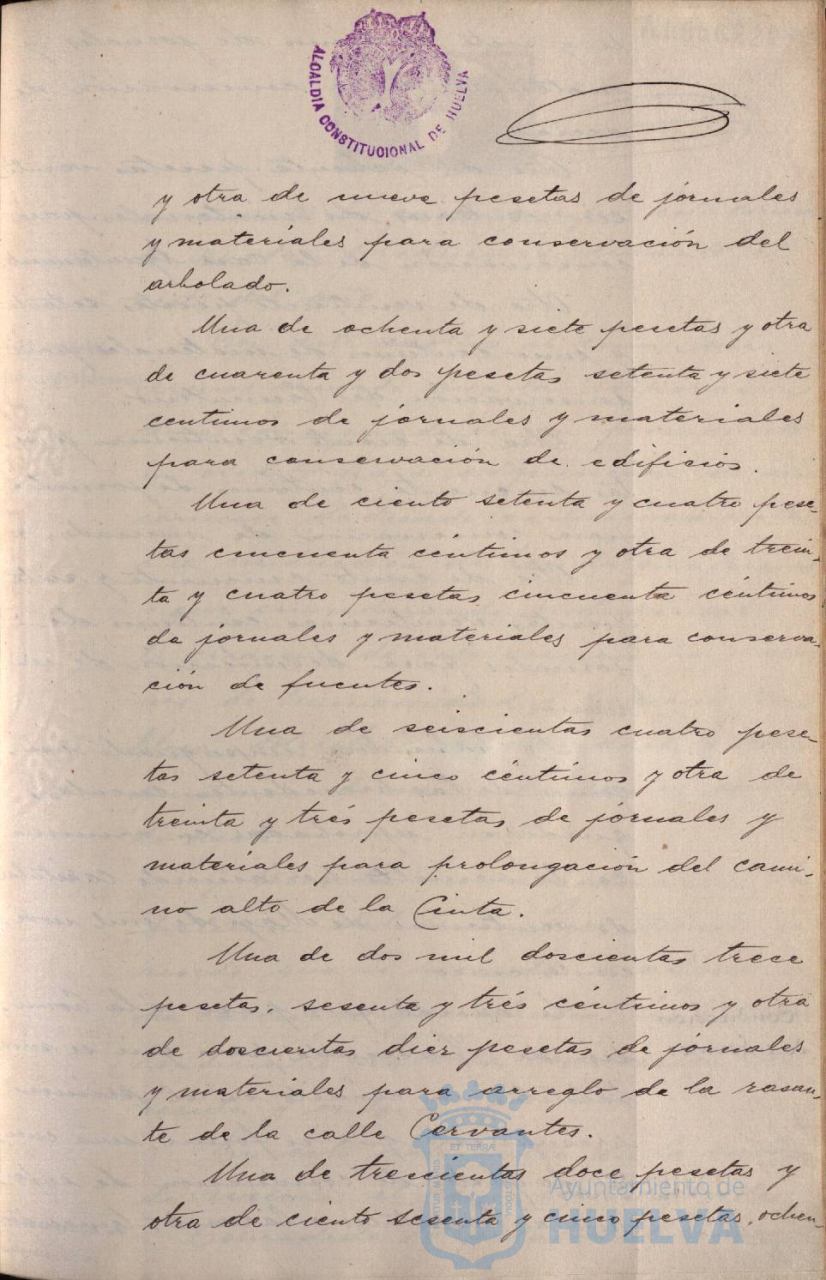 ALCALDIA CONSTITUCIONAL DE HUELVA
y otra de nueve pesetas de jornales
y materiales para conservación del
arbolado.
Una de ochenta y siete pesetas y otra
de cuarenta y dos pesetas setenta y siete
centimos de jornales y materiales
para conservación de edificios.
Una de ciento setenta y cuatro pese-
tas cincuenta céntimos y otra de trein-
ta y cuatro pesetas cincuenta céntimos
de jornales y materiales para conserva-
ción de fuentes.
Una de seiscientas cuatro pese-
tas setenta y cinco céntimos y otra de
treinta y trés pesetas de jornales y
materiales para prolongación del cami-
no alto de la Cinta.
Una de dos mil doscientas trece
pesetas, sesenta y trés céntimos y otra
de doscientas diez pesetas de jornales
y materiales para arreglo de la rasan-
te de la calle Cervantes.
Una de trescientas doce pesetas y
otra de ciento sesenta y cinco pesetas, ochen-
Ayuntamiento de
HUELVA